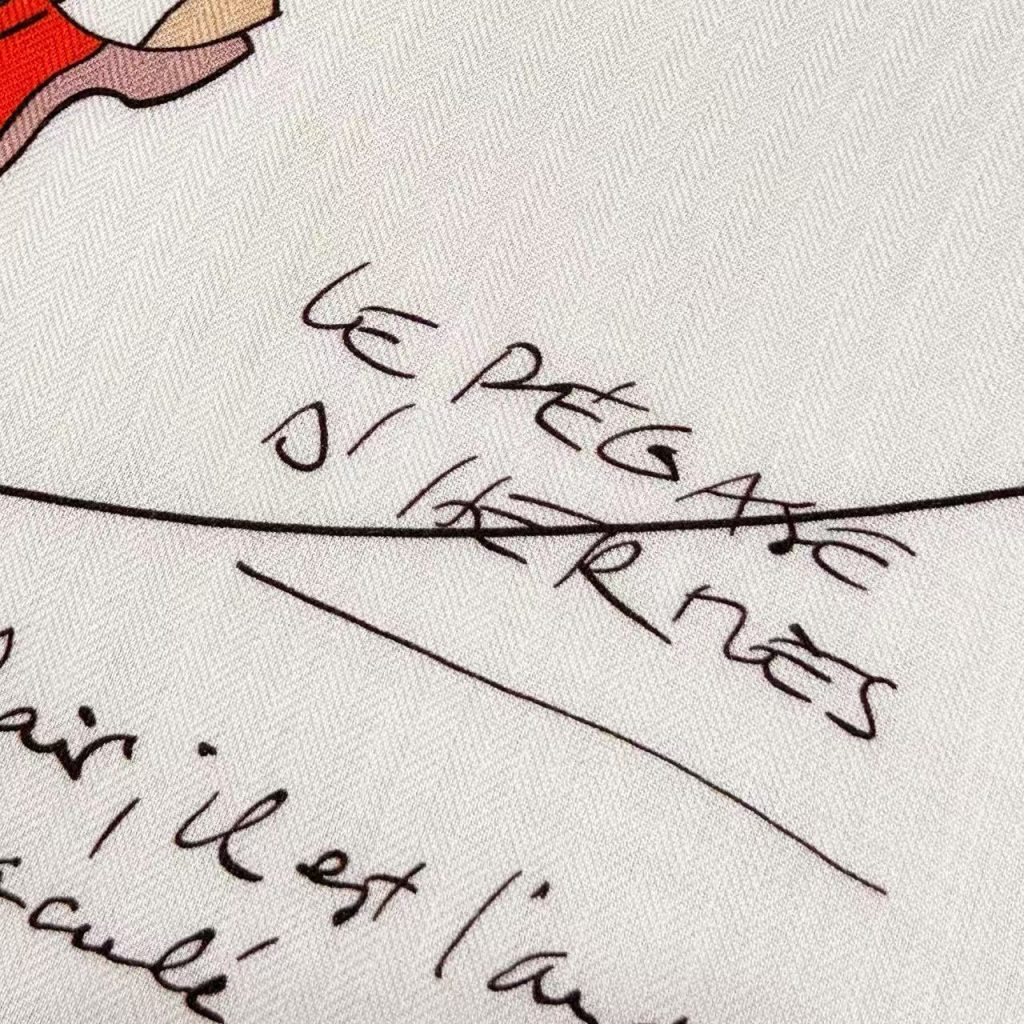 LE PÉGASE
D'HERMÈS
air, il est l'
culé